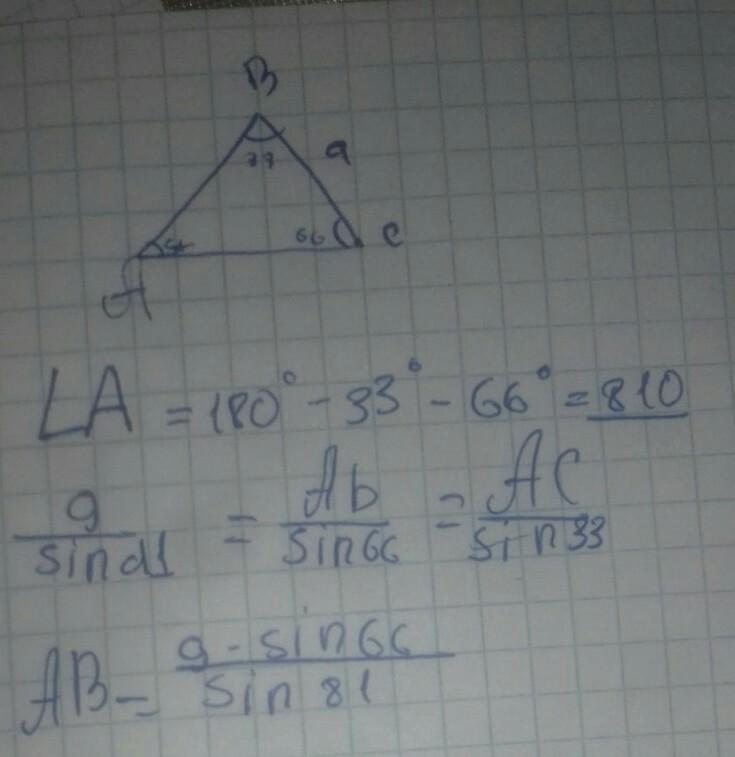 B
33
a
66
C
A
∠A = 180° - 33° - 66° = 810
a/sin81 = Ab/sin66 = AC/sin33
AB = a · sin66/sin81